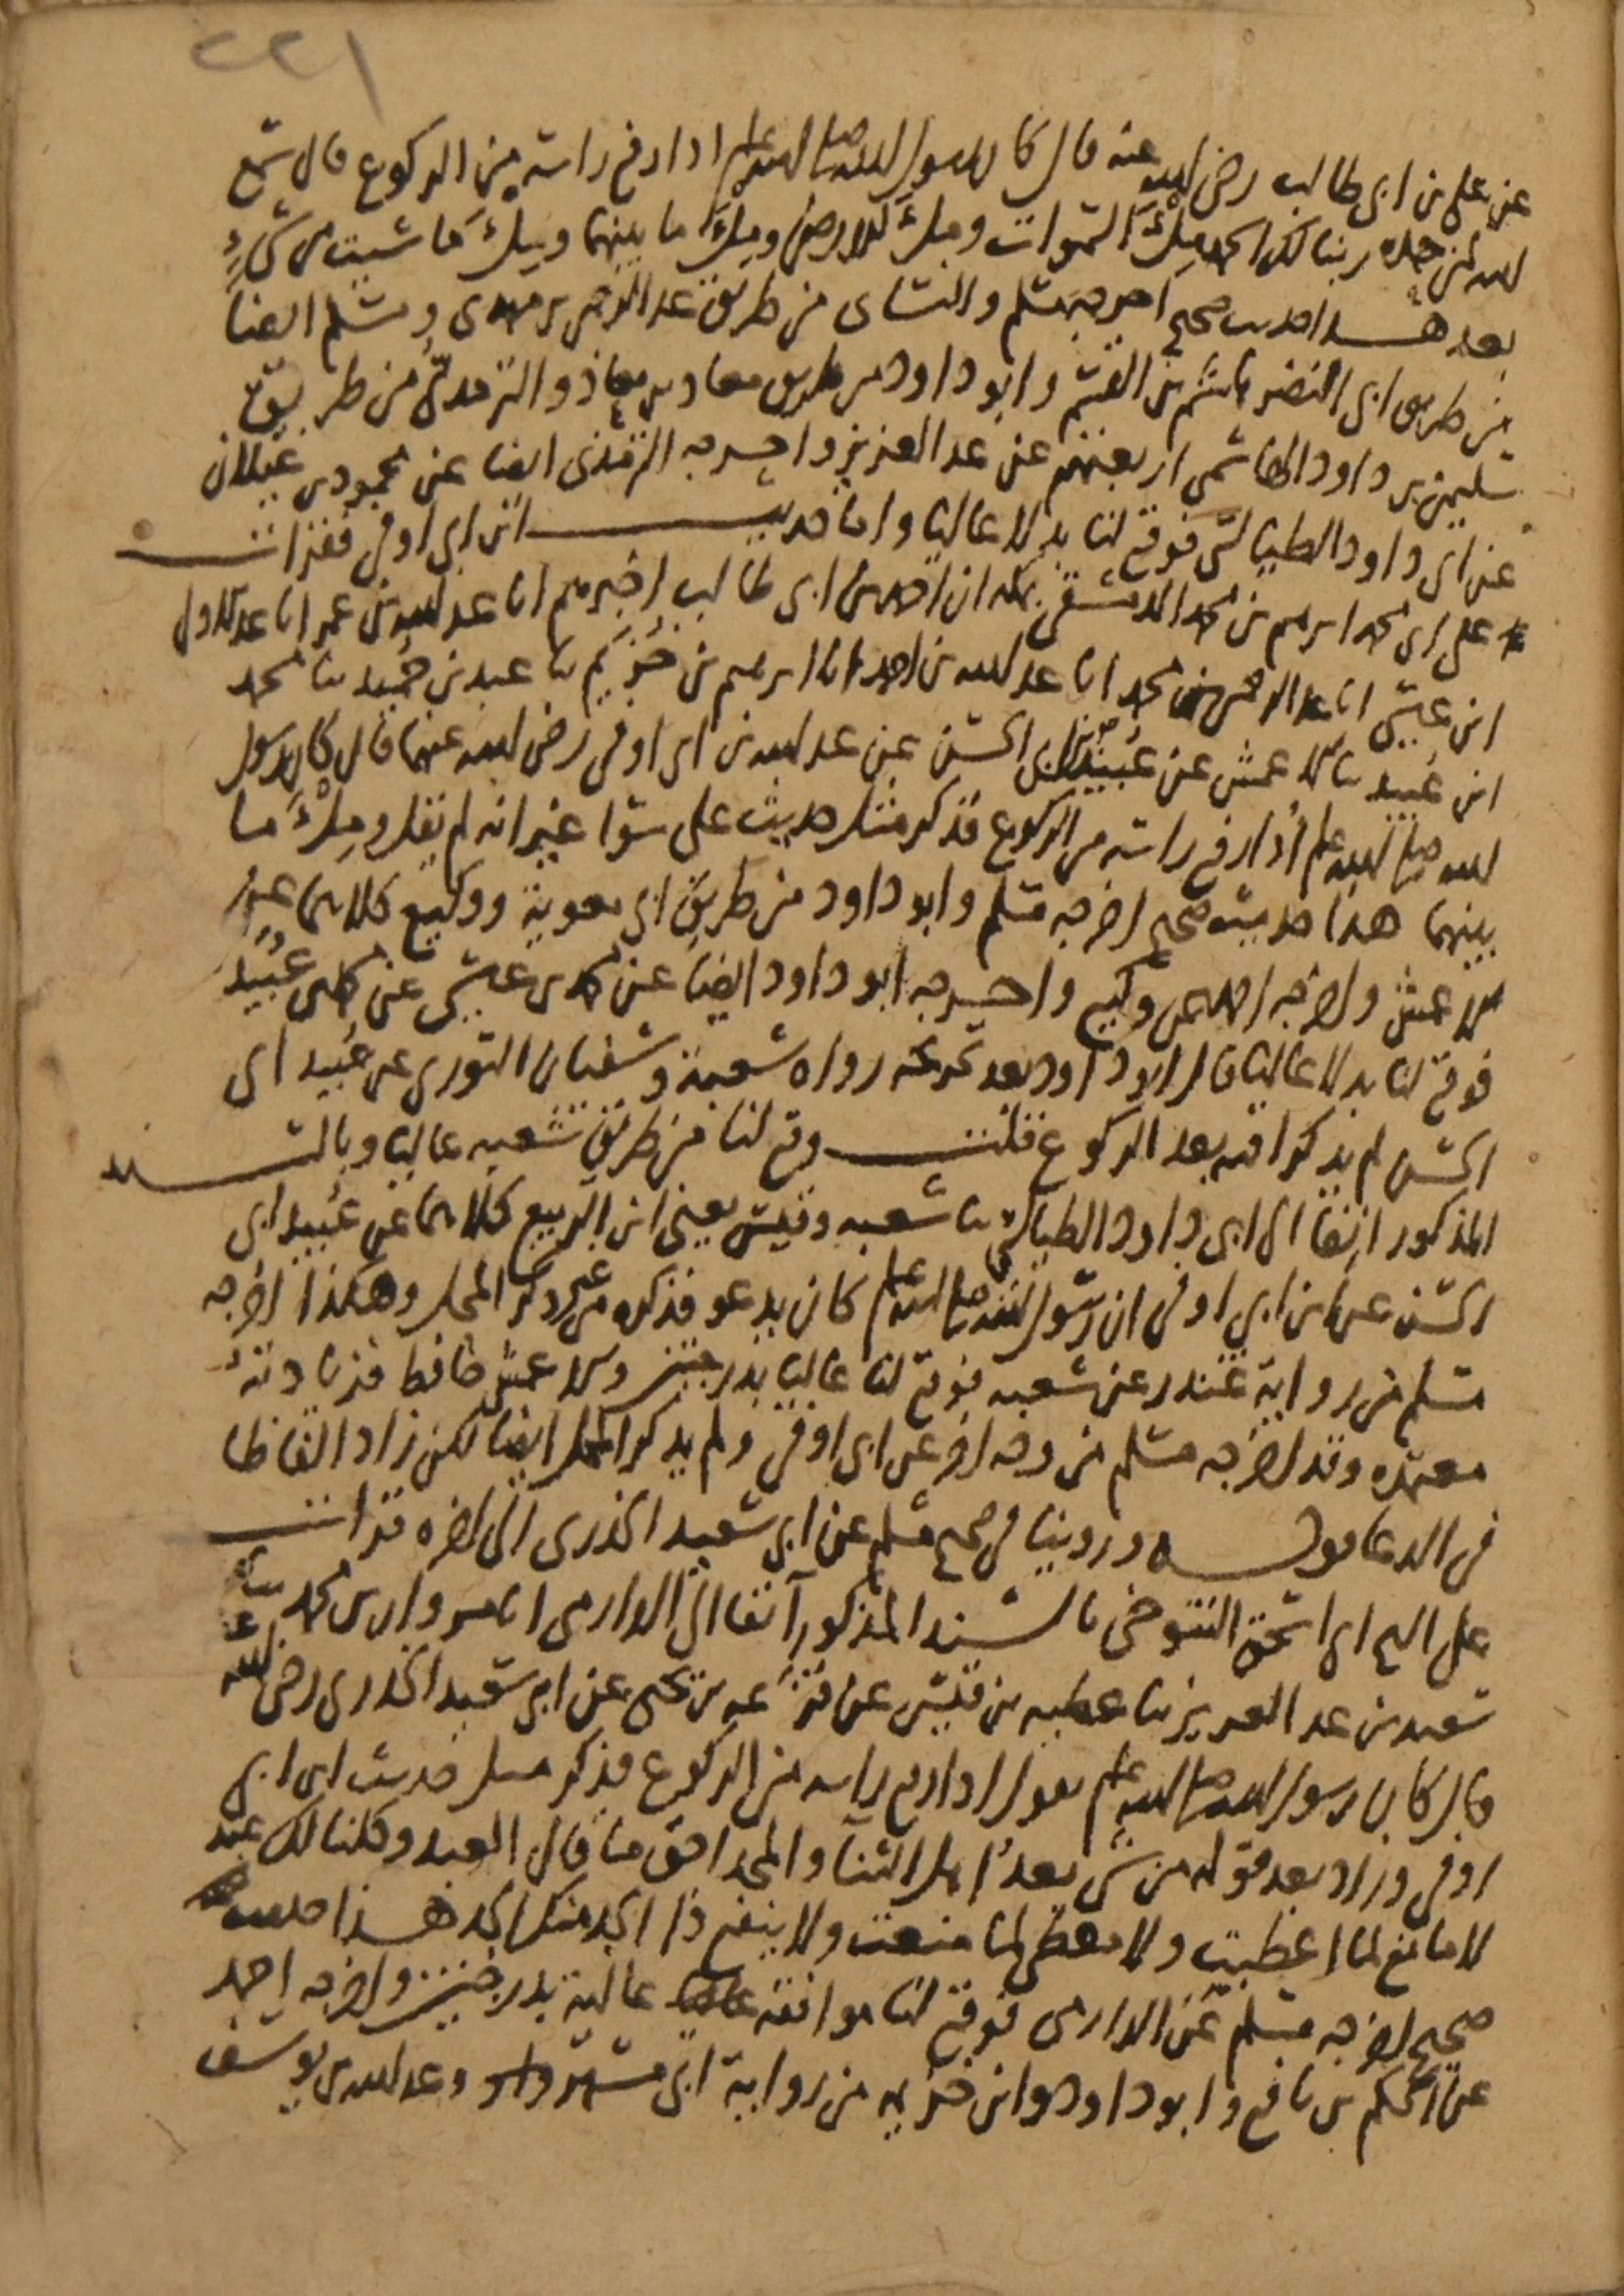 ٢٢١
عن علي بن ابي طالب رضي الله عنه قال كان رسول الله صلى الله عليه وسلم اذا رفع راسه من الركوع قال سمع
الله لمن حمده ربنا لك الحمد ملءَ السموات وملءَ الارض وملءَ ما بينهما وملءَ ما شيت من شيءٍ
بعد هذا حديث صحيح اخرجه مسلم والنساى من طريق عبد الرحمن بن مهدى ومسلم ايضا
من طريق ابى النضر هاشم بن القسم وابو داود من طريق معاذ بن معاذ والترمذي من طريق
سليمن بن داود الهاشمي اربعتهم عن عبد العزيز واخرجه الترمذى ايضا عن محمود بن غيلان
عن ابى داود الطيالسى فوقع لنا بدلا عاليا واما حديث ابن ابي اوفى فقرات
على ابى محمد ابرهيم بن محمد الدمشقي بمكة ان احمد بن ابى طالب اخبرهم انا عبد الله بن عمر انا عبد الاول
ابن عيسى انا عبد الرحمن بن محمد انا عبد الله بن احمد انا ابرهيم بن خُزَيم ثنا عبد بن حُميد ثنا محمد
ابن عُبيد ثنا الاعمش عن عُبَيد بن الحسن عن عبد الله بن ابى اوفى رضى الله عنهما قال كان رسول
الله صلى الله عليه وسلم اذا رفع راسه من الركوع فذكر مثل حديث على سوا غير انه لم يقل وملءَ ما
بينهما هذا حديث صحيح اخرجه مسلم وابو داود من طريق ابى معوية ووكيع كلاهما عن
الاعمش واخرجه احمد عن وكيع واخرجه ابو داود ايضا عن محمد بن عيسى عن محمد بن عُبَيد
فوقع لنا بدلا عاليا قال ابو داود بعد تخريجه رواه شعبة وسفيان الثورى عن عُبيد ابى
الحسن لم يذكرا فيه بعد الركوع قلت وقع لنا من طريق شعبه عاليا وبالسند
المذكور انفا الى ابى داود الطيالسى ثنا شعبه وقيس يعنى ابن الربيع كلاهما عن عُبيد ابى
الحسن عن ابن ابي اوفى ان رسول الله صلى الله عليه وسلم كان يدعو فذكره من غير ذكر المحل وهكذا اخرجه
مسلم من رواية غندر عن شعبه فوقع لنا عاليا بدرجتين والاعمش حافظ فزيادته
معتمده وقد اخرجه مسلم من وجه اخر عن ابن ابى اوفى ولم يذكر المحل ايضا لكن زاد الفاظا
فى الدعا قوله وروينا فى صحيح مسلم عن ابى سعيد الخدرى الى اخره قرات
على الشيخ ابى اسحق التنوخى بالسند المذكور آنفا الى الدارمى انا مروان بن محمد ثنا
سعيد بن عبد العزيز ثنا عطيه بن قيس عن قزَعه بن يحيى عن ابى سعيد الخدرى رضى الله عنه
قال كان رسول الله صلى الله عليه وسلم يقول اذا رفع راسه من الركوع فذكر مثل حديث ابن ابى
اوفى وزاد بعد قوله من شى بعدُ اهل الثنآ والمجد احق ما قال العبد وكلنا لك عبد
لا مانع لما اعطيت ولا معطى لما منعت ولا ينفع ذا الجد منك الجد هذا حديث
صحيح اخرجه مسلم عن الدارمى فوقع لنا موافقه عالية بدرجتين واخرجه احمد
عن الحكم بن نافع وابو داود وابن خزيمه من رواية ابى مسهر وعبد الله بن يوسف